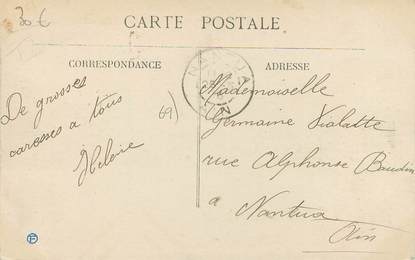 30 €
CARTE POSTALE
CORRESPONDANCE
ADRESSE
De grosses
caresses a tous
Heloïse
69)
NANTUA
Mademoiselle
Germaine Violatte
rue Alphonse Baudin
a Nantua
Ain